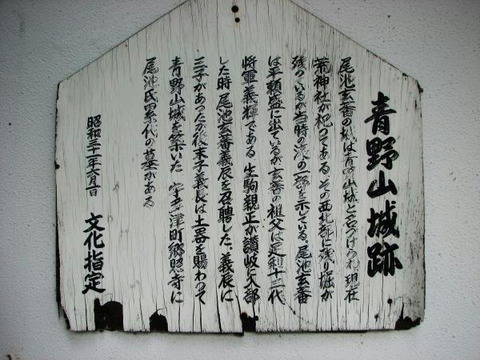 青野山城跡
尾池玄蕃の城は青野山城と名づけられ、現在
荒神社が祀つてある。その西北部に残り堀が
残つているが当時の濠の一部を示している。尾池玄蕃
は平頼盛に出ているが玄蕃の祖父は足利十三代
将軍義輝である。生駒親正が讃岐に入部
した時尾池玄蕃義辰を召聘した。義辰に
三子があつたが後末子義長は土器を賜わつて
青野山城を築いた 宇多津町郷照寺に
尾池氏累代の墓がある
昭和三十一年六月一日 文化指定